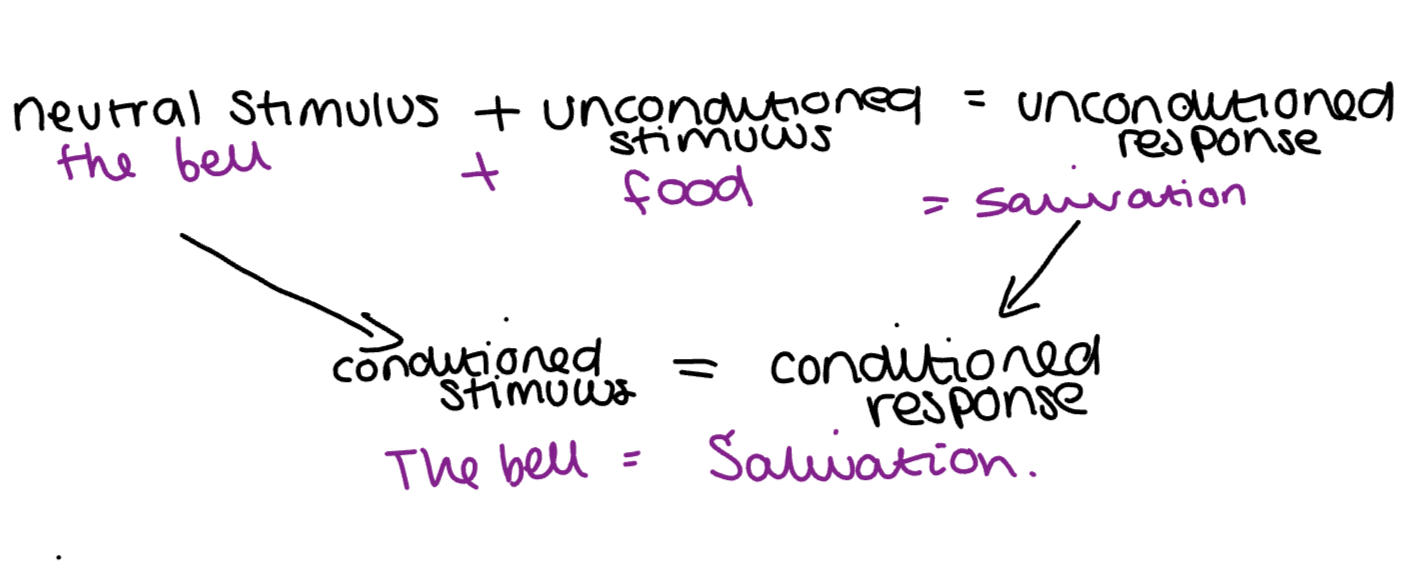 neutral stimulus + unconditioned = unconditioned
stimulus response
the bell + food = salivation
conditioned = conditioned
stimulus response
The bell = Salivation.